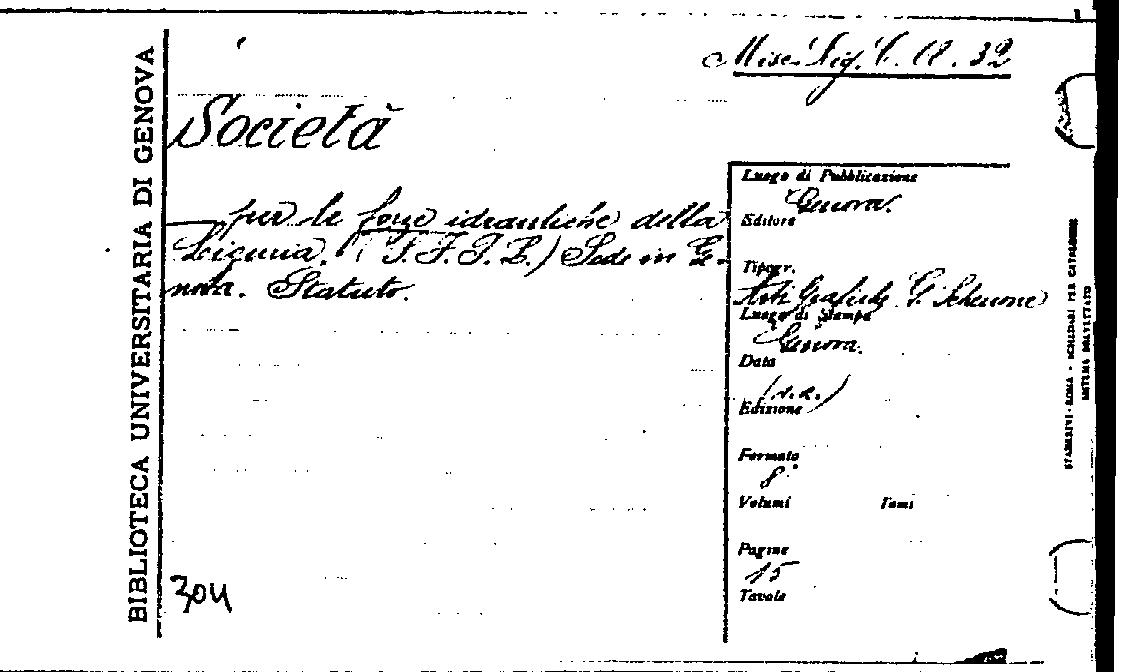 Misc. Lig. C. A. 32
BIBLIOTECA UNIVERSITARIA DI GENOVA
Società
— per le forze idrauliche della
Liguria. (S.F.I.L.) Sede in Ge-
nova. Statuto.
304
Luogo di Pubblicazione
Genova.
Editore
Tipogr.
Arti Grafiche G. Schenone
Luogo di Stampa
Genova.
Data
Edizione
Formato
8°
Volumi Tomi
Pagine
15
Tavole
STADERINI - ROMA - SCHEDARI PER CATALOGHI
SISTEMA BREVETTATO